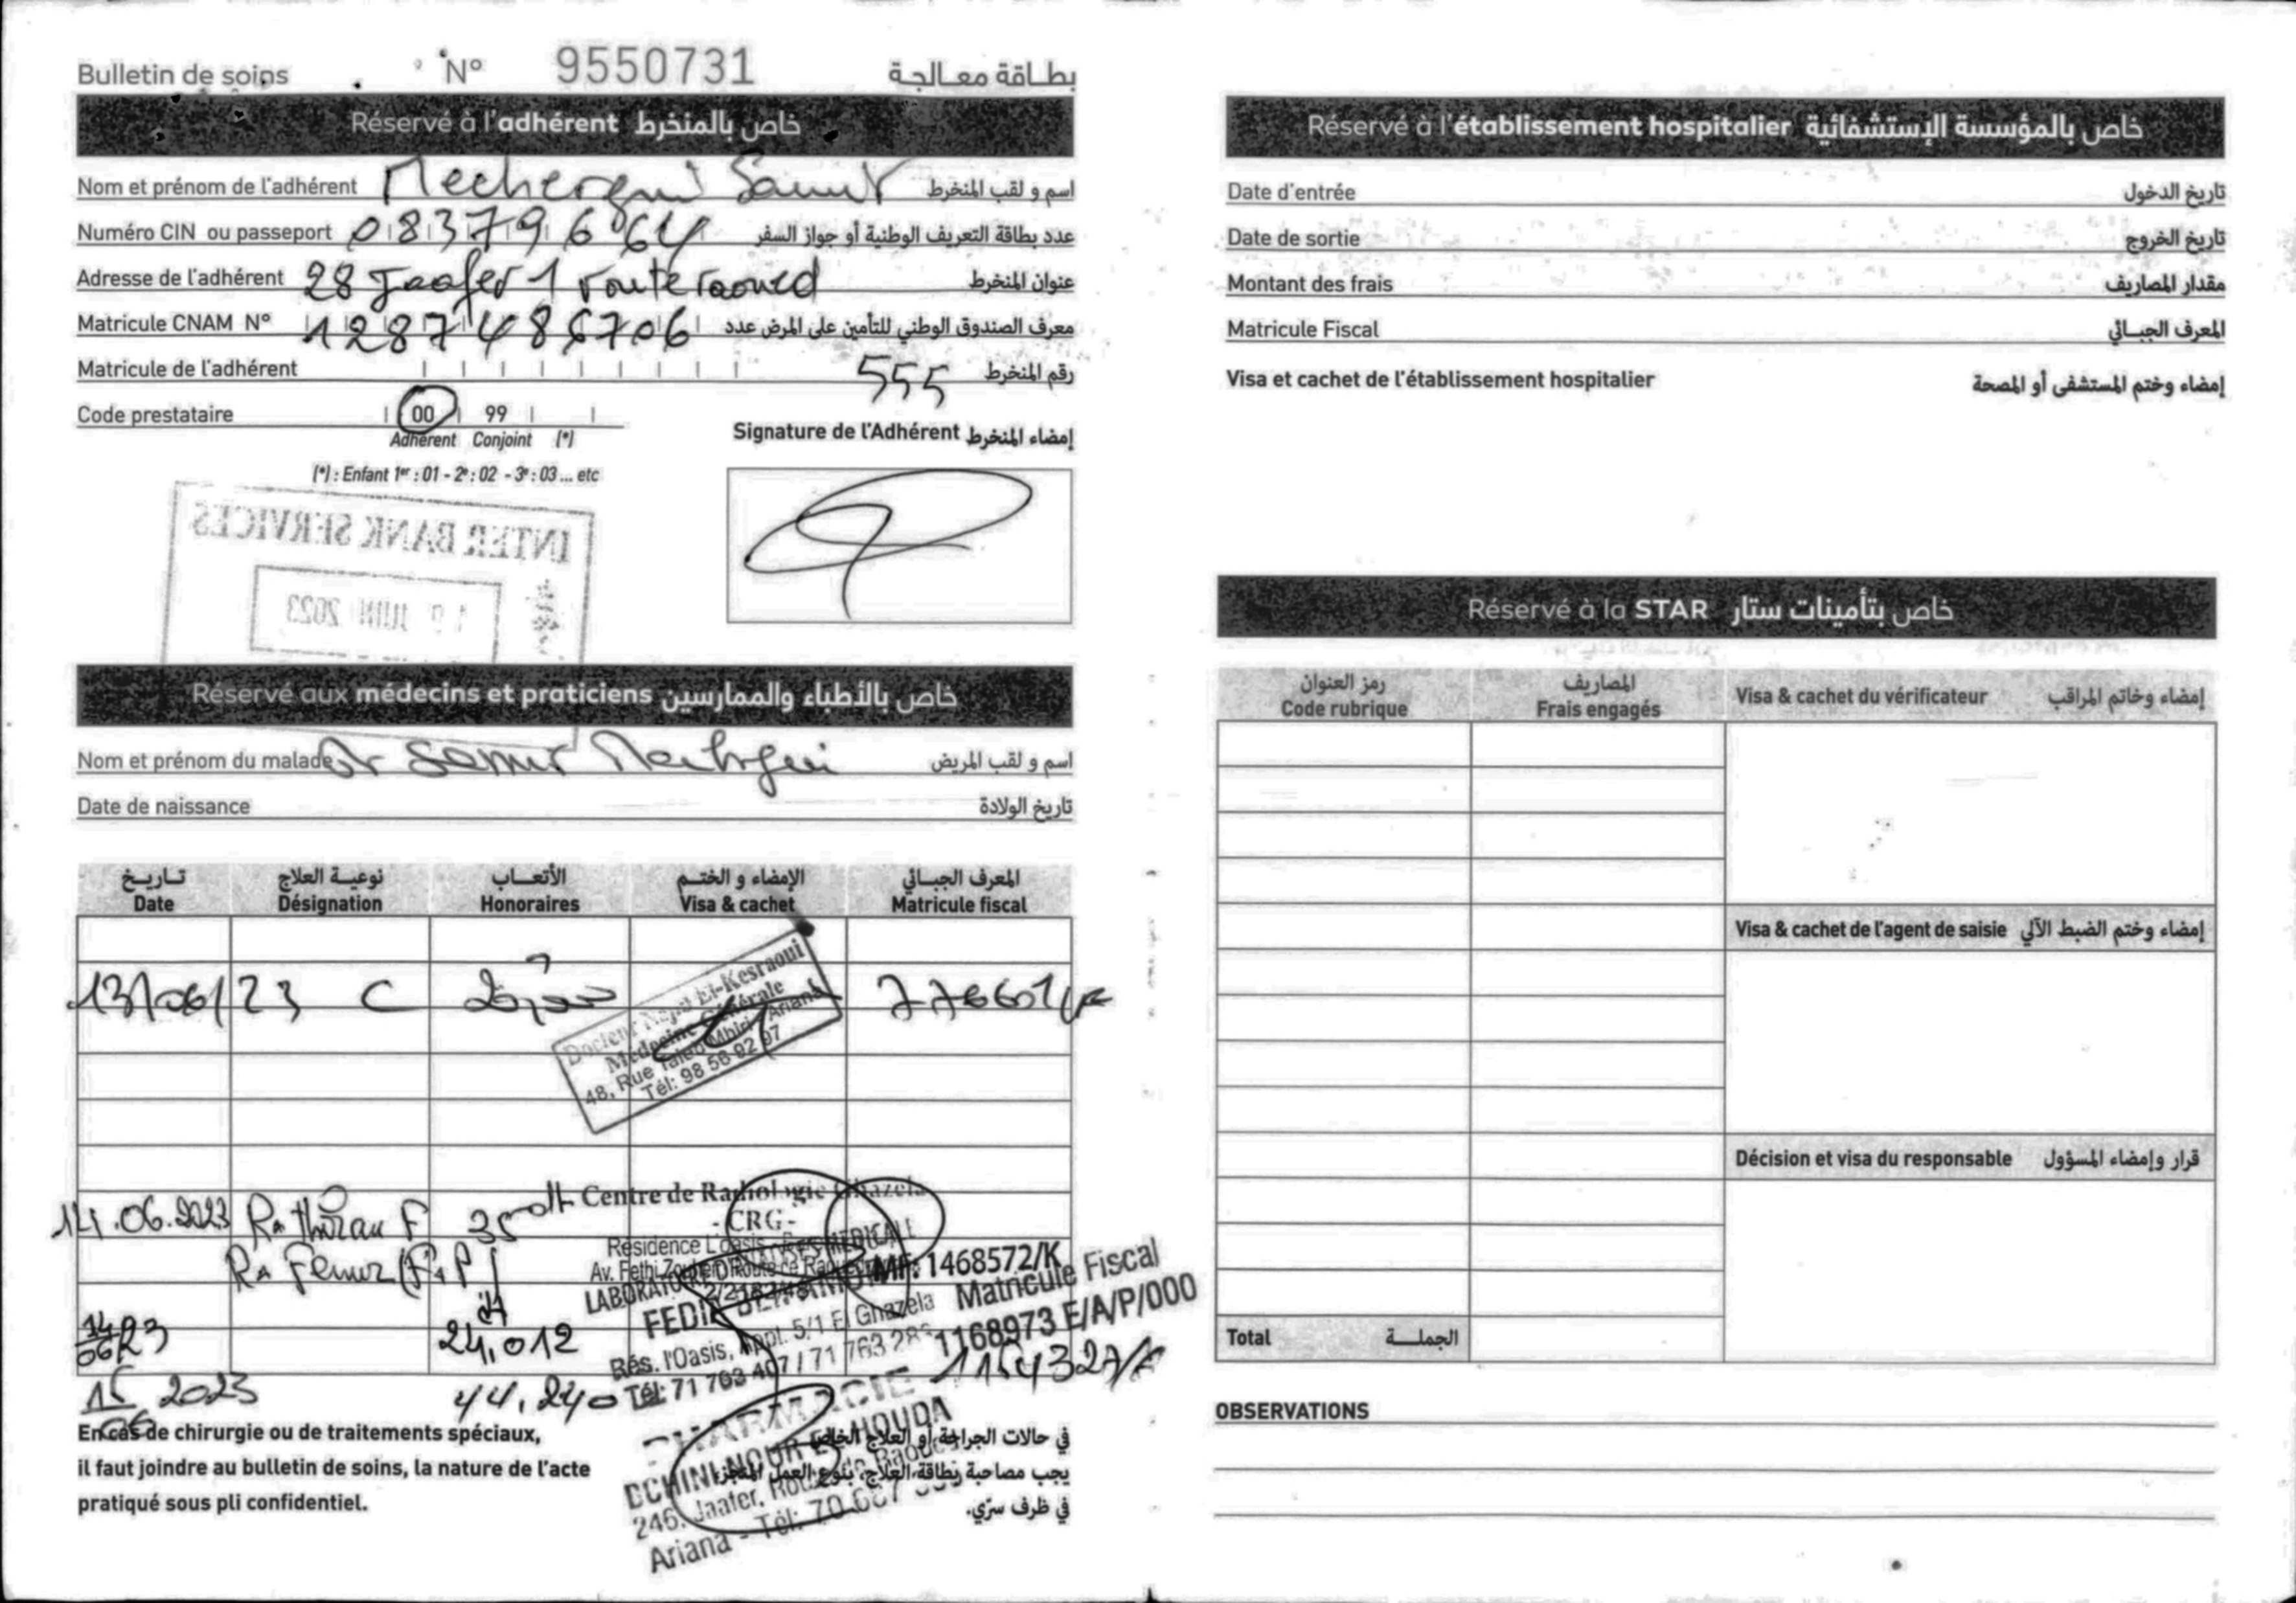 Bulletin de soins N° 9550731 بطاقة معالجة
Réservé à l'adhérent خاص بالمنخرط
Nom et prénom de l'adhérent Mechergui Samir اسم و لقب المنخرط
Numéro CIN ou passeport 08379664 عدد بطاقة التعريف الوطنية أو جواز السفر
Adresse de l'adhérent 28 Jaafer 1 route raoued عنوان المنخرط
Matricule CNAM N° معرف الصندوق الوطني للتأمين على المرض عدد
Matricule de l'adhérent 555 رقم المنخرط
Code prestataire 00 99
Adhérent Conjoint (*)
(*) : Enfant 1er : 01 - 2e : 02 - 3e : 03 ... etc
Signature de l'Adhérent إمضاء المنخرط
INTER BANK SERVICES
JUIN 2023
Réservé aux médecins et praticiens خاص بالأطباء والممارسين
Nom et prénom du malade Samir اسم و لقب المريض
Date de naissance تاريخ الولادة
تاريخ نوعية العلاج الأتعاب الإمضاء و الختم المعرف الجبائي
Date Désignation Honoraires Visa & cachet Matricule fiscal
13/06/23 C
Docteur El-Kesraoui
Médecine Générale
48, Rue Taieb Mhiri Ariana
Tél: 98 56 92 97
14.06.2023 Rx F 35 dt
Rx Femur (F+P)
Centre de Radiologie Ghazela
- CRG -
Résidence L'oasis
Av. Fethi Zouhir Route de Raoued
MF: 1468572/K
14/06/23 24,012
LABORATOIRE D'ANALYSES MEDICALES
Rés. l'Oasis, Appt. 5/1 El Ghazela
Tél: 71 763 407 / 71 763
Matricule Fiscal
1168973 E/A/P/000
15/06 2023 44,240 1154327/
PHARMACIE
DCHINI NOUR EL HOUDA
246, Jaafer, Route de Raoued
Ariana - Tél: 70
En cas de chirurgie ou de traitements spéciaux,
il faut joindre au bulletin de soins, la nature de l'acte
pratiqué sous pli confidentiel.
في حالات الجراحة أو العلاج الخاص
يجب مصاحبة بطاقة العلاج، بنوع العمل المنجز
في ظرف سرّي.
Réservé à l'établissement hospitalier خاص بالمؤسسة الإستشفائية
Date d'entrée تاريخ الدخول
Date de sortie تاريخ الخروج
Montant des frais مقدار المصاريف
Matricule Fiscal المعرف الجبائي
Visa et cachet de l'établissement hospitalier إمضاء وختم المستشفى أو المصحة
Réservé à la STAR خاص بتأمينات ستار
رمز العنوان المصاريف
Code rubrique Frais engagés Visa & cachet du vérificateur إمضاء وخاتم المراقب
Visa & cachet de l'agent de saisie إمضاء وختم الضبط الآلي
Décision et visa du responsable قرار وإمضاء المسؤول
Total الجملة
OBSERVATIONS